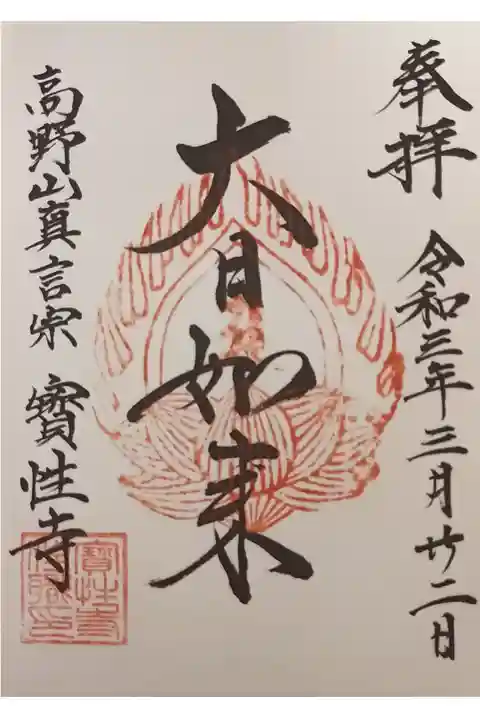 奉拝　令和三年三月廿二日
大日如来
高野山真言宗　寳性寺